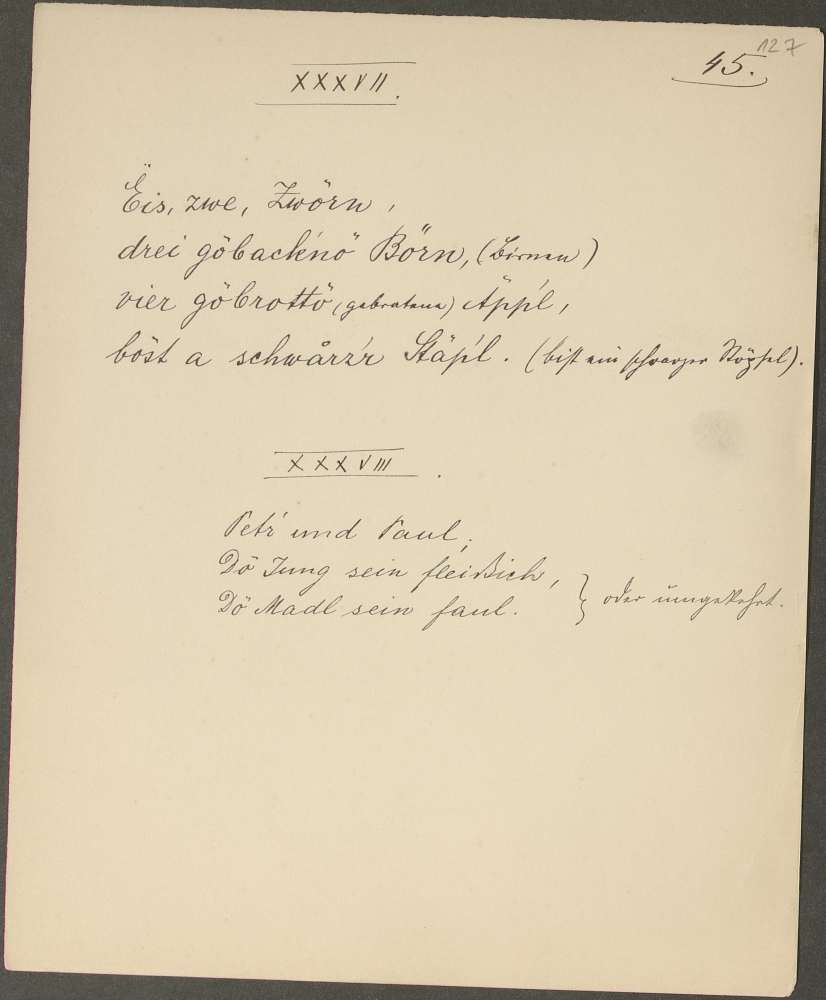 127
45.
XXXVII.
Ëis, zwe, Zwörn,
drei göback'nö Börn, (Birnen)
vier göbrottö, (gebratene) Äpp'l,
böst a schwårz'r Stäp'l. (bist ein schwarzer Stöpsel).
XXXVIII.
Pet'r und Paul,
Dö Jung sein fleißich,
Dö Madl sein faul. } oder umgekehrt.